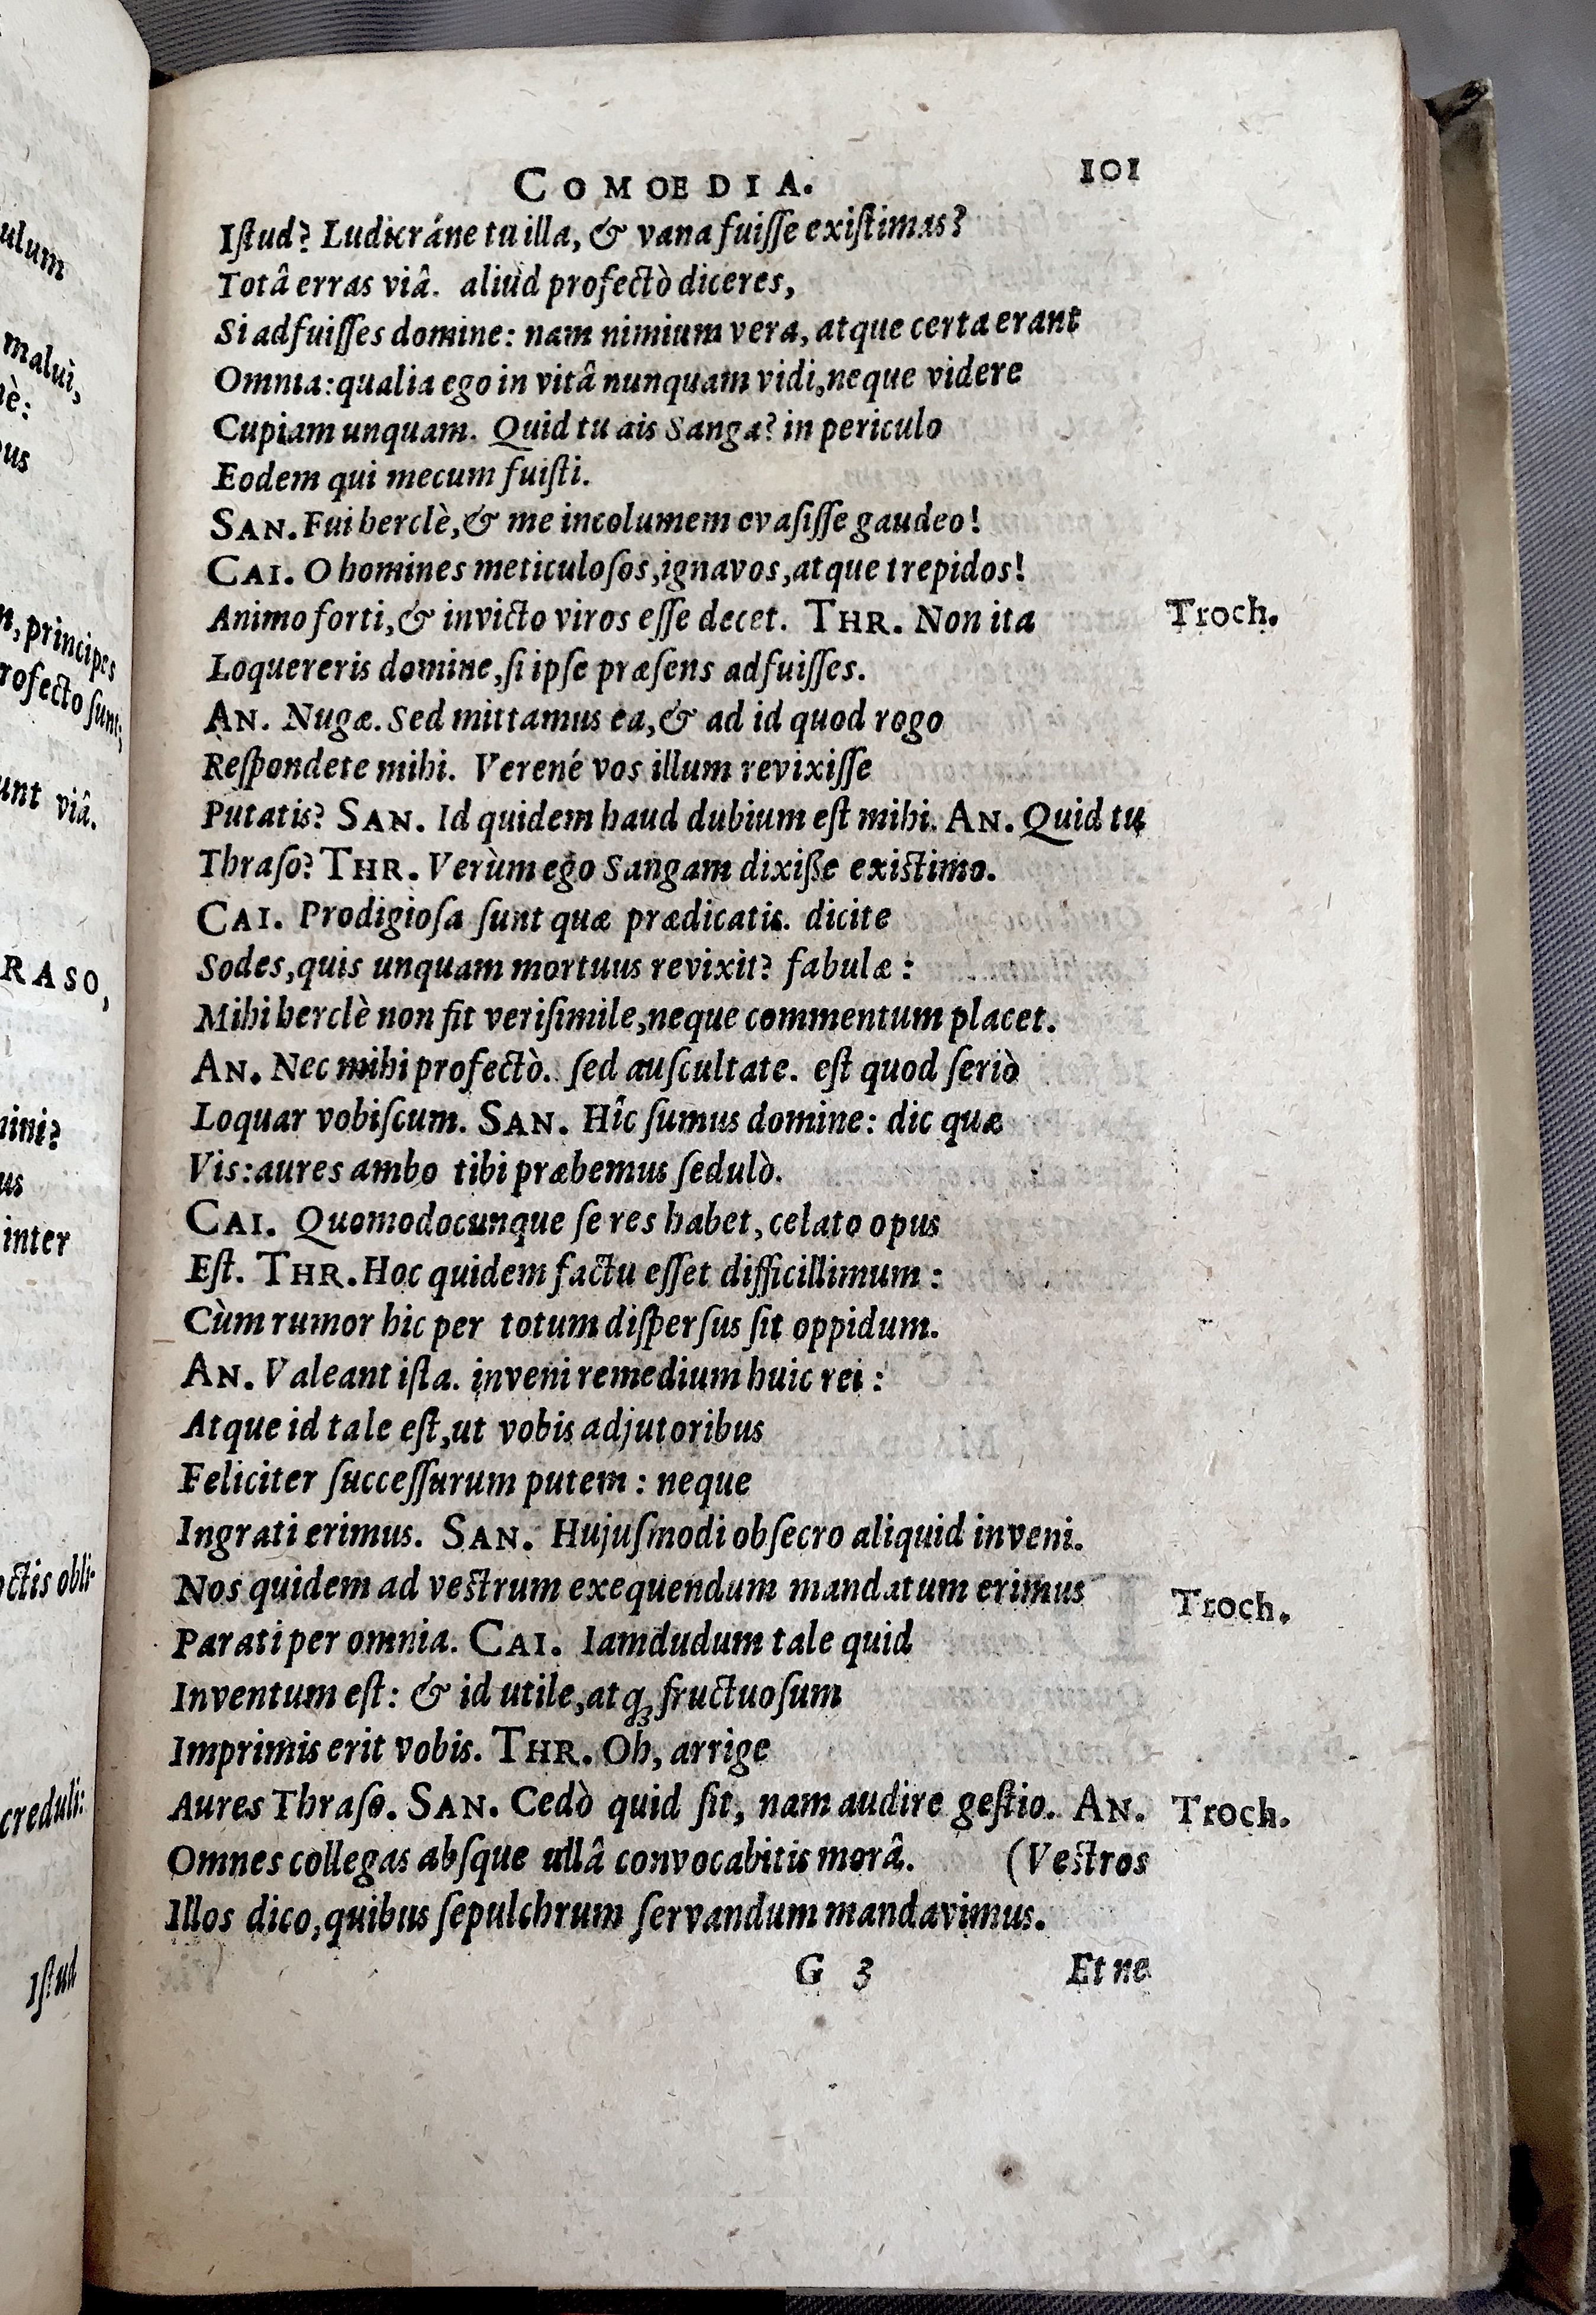 COMOEDIA. 101
Iſtud? Ludicráne tu illa, & vana fuiſſe exiſtimas?
Totâ erras viâ. aliud profectò diceres,
Si adfuiſſes domine: nam nimium vera, atque certa erant
Omnia: qualia ego in vitâ nunquam vidi, neque videre
Cupiam unquam. Quid tu ais Sanga? in periculo
Eodem qui mecum fuiſti.
SAN. Fui herclè, & me incolumem evaſiſſe gaudeo!
CAI. O homines meticuloſos, ignavos, atque trepidos!
Animo forti, & invicto viros eſſe decet. THR. Non ita Troch.
Loquereris domine, ſi ipſe præſens adfuiſſes.
AN. Nugæ. Sed mittamus ea, & ad id quod rogo
Reſpondete mihi. Verené vos illum revixiſſe
Putatis? SAN. Id quidem haud dubium eſt mihi. AN. Quid tu
Thraſo? THR. Verùm ego Sangam dixiße exiſtimo.
CAI. Prodigioſa ſunt quæ prædicatis. dicite
Sodes, quis unquam mortuus revixit? fabulæ:
Mihi herclè non fit veriſimile, neque commentum placet.
AN. Nec mihi profectò. ſed auſcultate. eſt quod ſeriò
Loquar vobiſcum. SAN. Hîc ſumus domine: dic quæ
Vis: aures ambo tibi præbemus ſedulò.
CAI. Quomodocunque ſe res habet, celato opus
Eſt. THR. Hoc quidem factu eſſet difficillimum:
Cùm rumor hic per totum diſperſus ſit oppidum.
AN. Valeant iſta. inveni remedium huic rei:
Atque id tale eſt, ut vobis adjutoribus
Feliciter ſucceſſurum putem: neque
Ingrati erimus. SAN. Hujuſmodi obſecro aliquid inveni.
Nos quidem ad veſtrum exequendum mandatum erimus Troch.
Parati per omnia. CAI. Iamdudum tale quid
Inventum eſt: & id utile, atqꝫ fructuoſum
Imprimis erit vobis. THR. Oh, arrige
Aures Thraſo. SAN. Cedò quid ſit, nam audire geſtio. AN. Troch.
Omnes collegas abſque ullâ convocabitis morâ. (Veſtros
Illos dico, quibus ſepulchrum ſervandum mandavimus.
G 3 Et ne
ulum
malui,
nè:
us
principes
rofecto ſunt;
unt viâ.
RASO,
mini?
us
inter
octis obli-
creduli:
Iſtud